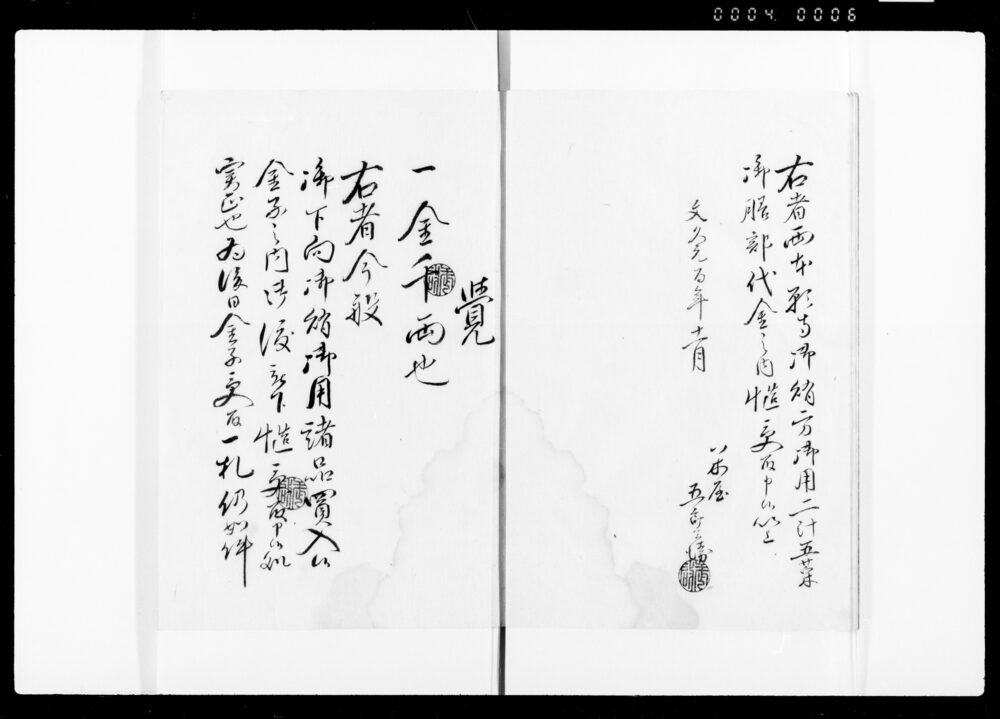 0004 0006
右者両本願寺御賄方御用二汁五菜
御膳部代金之内慥受取申候以上
文久元酉年十一月
八木屋
五兵衛
覚
一金千両也
右者今般
御下向御賄御用諸品買入候
金子之内御渡被下慥受取申候処
実正也為後日金子受取一札仍如件